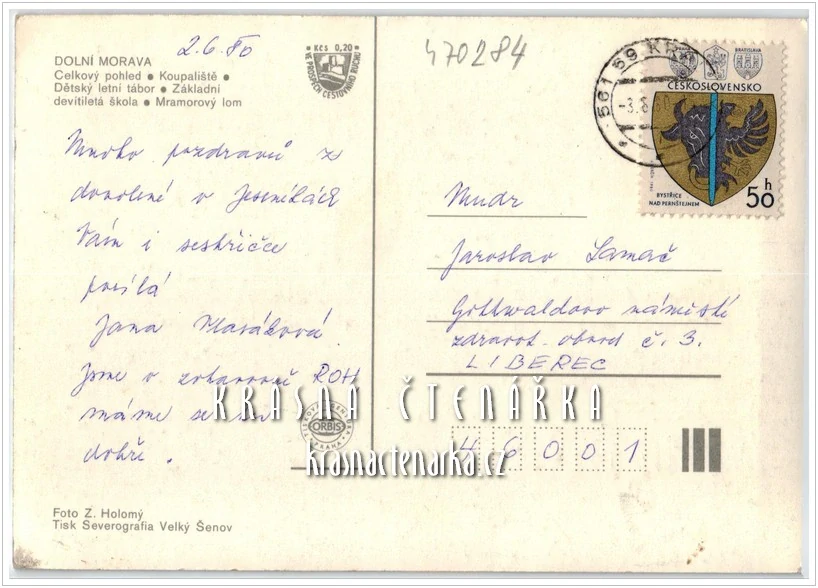 DOLNÍ MORAVA
Celkový pohled • Koupaliště •
Dětský letní tábor • Základní
devítiletá škola • Mramorový lom
2.6.80
Kčs 0,20
VE PROSPĚCH CESTOVNÍHO RUCHU
470284
561 69 KR
-3.6.80
BRATISLAVA
ČESKOSLOVENSKO
BYSTŘICE
NAD PERNŠTEJNEM
50 h
Mnoho pozdravů z
dovolené v Jeseníkách
Vám i sestřičce
posílá
Jana
Jsme v zotavovně ROH
máme se
dobře.
Mudr
Jaroslav Samač
Gottwaldovo náměstí
zdravot. obvod č. 3.
LIBEREC
46001
ORBIS
PRAHA
KRÁSNÁ ČTENÁŘKA
krasnactenarka.cz
Foto Z. Holomý
Tisk Severografia Velký Šenov